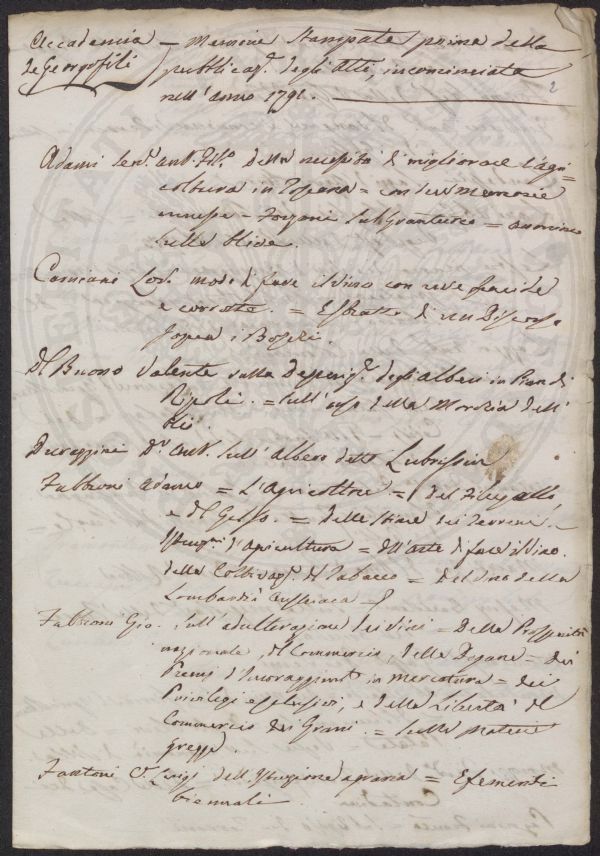 Accademia de Georgofili — Memorie stampate prima della
pubblicaz.e degli Atti, incominciata
nell'anno 1791.
2
Adami della necessità di migliorare l'agri=
coltura in Toscana = con due Memorie
sul Granturco =
sulle Olive.
Lod. modo di fare il vino con uve fracide
e corrotte. = Estratto di un Discorso
sopra i Bozzoli.
Del Buono Valente sulla degli alberi in Pian di
Ripoli. = sull' della dell'
Ant. sull'albero detto
Fabbroni Adamo = L'Agricoltore = del Filugello
e del Gelso. = delle Stime dei Terreni. —
d'Agricultura = dell'arte di fare il vino.
della Coltivaz.e del Tabacco = Del vino della
Lombardia Austriaca =
Fabbroni Gio. sull'adulterazione dei vini = Della Prosperità
nazionale, del Commercio, delle Dogane = dei
Premi d'Incoraggim.ti in mercatura = dei
Privilegi esclusivi, e della Libertà del
Commercio dei Grani. = sulle Materie
gregge.
Fantoni C. Luigi dell'Istruzione agraria = Esementi
biennali